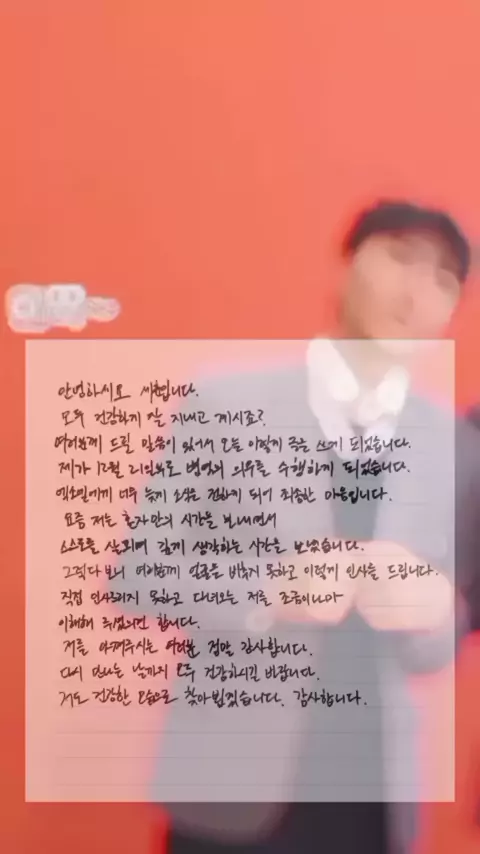 안녕하시요 세훈입니다.
모두 건강하게 잘 지내고 계시죠?
여러분께 드릴 말씀이 있어서 오늘 이렇게 글을 쓰게 되었습니다.
제가 12월 21일부로 병역의 의무를 수행하게 되었습니다.
엑소엘에게 너무 늦게 소식을 전하게 되어 죄송한 마음입니다.
요즘 저는 혼자만의 시간을 보내면서
스스로를 살피며 깊게 생각하는 시간을 보냈습니다.
그러다 보니 여러분께 얼굴을 비추지 못하고 이렇게 인사를 드립니다.
직접 인사드리지 못하고 다녀오는 저를 조금이나마
이해해 주셨으면 합니다.
저를 아껴주시는 여러분 정말 감사합니다.
다시 만나는 날까지 모두 건강하시길 바랍니다.
저도 건강한 모습으로 찾아뵙겠습니다. 감사합니다.